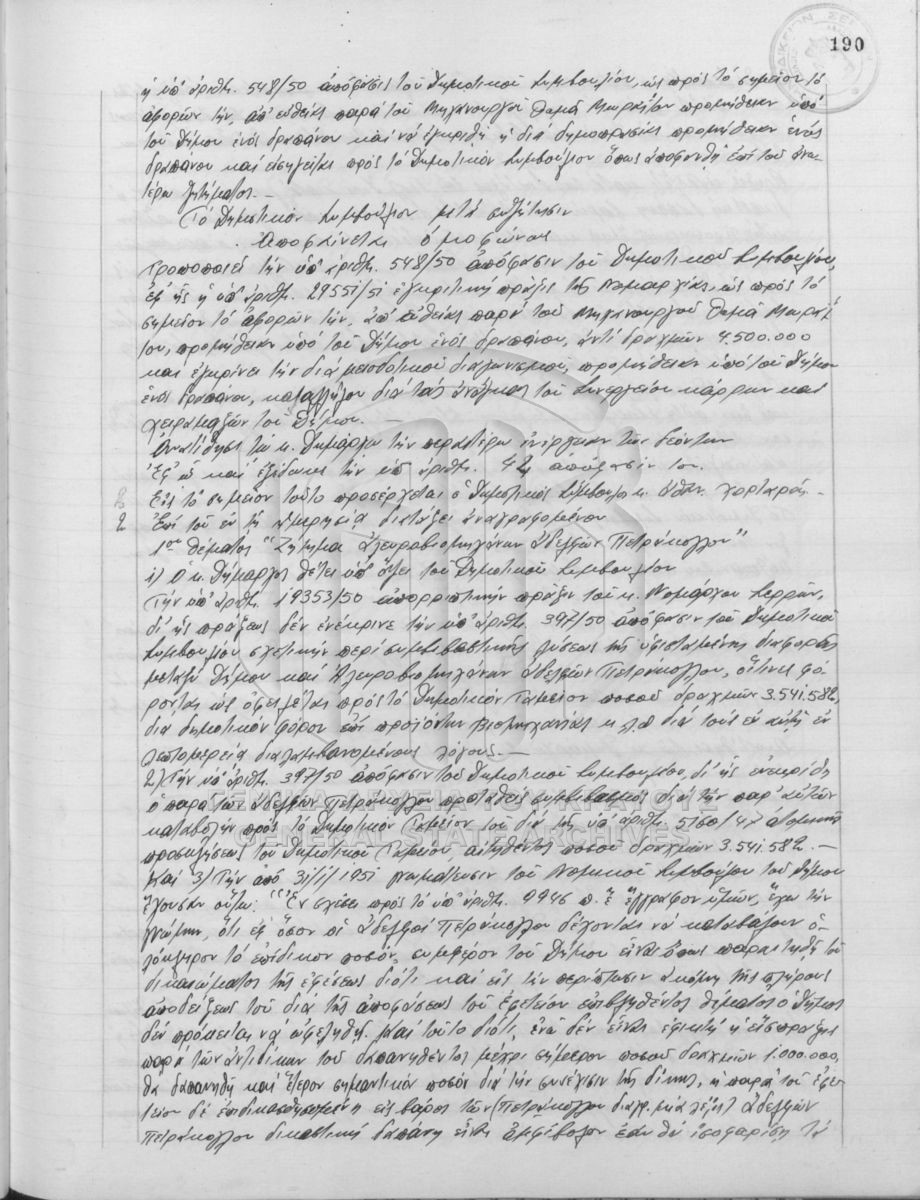 190
ἡ ὑπ' ἀριθμ. 548/50 ἀπόφασις τοῦ Δημοτικοῦ Συμβουλίου, ὡς πρὸς τὸ σημεῖον τὸ
ἀφορῶν τὴν, ἀπ' εὐθείας παρὰ τοῦ Μηχανουργοῦ Θωμᾶ προμήθειαν ὑπὸ
τοῦ Δήμου ἑνὸς δραπάνου καὶ νὰ ἐγκριθῇ ἡ διὰ δημοπρασίας προμήθεια ἑνὸς
δραπάνου καὶ εἰσηγεῖται πρὸς τὸ Δημοτικὸν Συμβούλιον ὅπως ἀποφανθῇ ἐπὶ τοῦ ἀνω-
τέρω ζητήματος.—
Τὸ Δημοτικὸν Συμβούλιον μετὰ συζήτησιν
Ἀποφαίνεται ὁμοφώνως
Τροποποιεῖ τὴν ὑπ' ἀριθμ. 548/50 ἀπόφασιν τοῦ Δημοτικοῦ Συμβουλίου,
ἐφ' ἧς ἡ ὑπ' ἀριθμ. 29551/51 ἐγκριτικὴ πρᾶξις τῆς Νομαρχίας, ὡς πρὸς τὸ
σημεῖον τὸ ἀφορῶν τὴν, ἀπ' εὐθείας παρὰ τοῦ Μηχανουργοῦ Θωμᾶ
του, προμήθειαν ὑπὸ τοῦ Δήμου ἑνὸς δραπάνου, ἀντὶ δραχμῶν 4.500.000
καὶ ἐγκρίνει τὴν διὰ μειοδοτικοῦ διαγωνισμοῦ, προμήθειαν ὑπὸ τοῦ Δήμου
ἑνὸς δραπάνου, καταλλήλου διὰ τὰς ἀνάγκας τοῦ Συνεργείου κάρρων καὶ
χειραμαξῶν τοῦ Δήμου.—
Ἀνατίθησι τῷ κ. Δημάρχῳ τὴν περαιτέρω ἐνέργειαν τῶν δεόντων
Ἐφ' ᾧ καὶ ἐξέδωκε τὴν ὑπ' ἀριθμ. 42 ἀπόφασίν του.
Εἰς τὸ σημεῖον τοῦτο προσέρχεται ὁ Δημοτικὸς Σύμβουλος κ. Ἀθαν. Χορταρᾶς.—
2 Ἐπὶ τοῦ ἐν τῇ ἡμερησίᾳ διατάξει ἀναγραφομένου
1ου θέματος "Ζήτημα Ἀλευροβιομηχάνων Ἀδελφῶν Πετρόκολλου"
1) Ὁ κ. Δήμαρχος θέτει ὑπ' ὄψει τοῦ Δημοτικοῦ Συμβουλίου
Τὴν ὑπ' ἀριθμ. 19353/50 ἀπορριπτικὴν πρᾶξιν τοῦ κ. Νομάρχου Σερρῶν,
δι' ἧς πράξεως δὲν ἐνέκρινε τὴν ὑπ' ἀριθμ. 397/50 ἀπόφασιν τοῦ Δημοτικοῦ
Συμβουλίου σχετικὴν περὶ συμβιβαστικῆς λύσεως τῆς ὑφισταμένης διαφορᾶς
μεταξὺ Δήμου καὶ Ἀλευροβιομηχάνων Ἀδελφῶν Πετρόκολλου, οἵτινες φέ-
ρονται ὡς ὀφειλέται πρὸς τὸ Δημοτικὸν Ταμεῖον ποσοῦ δραχμῶν 3.541.582,
διὰ δημοτικὸν φόρον ἐπὶ προϊόντων βιομηχανίας κ.λ.π διὰ τοὺς ἐν αὐτῇ ἐν
λεπτομερείᾳ διαλαμβανομένους λόγους.—
2) Τὴν ὑπ' ἀριθμ. 397/50 ἀπόφασιν τοῦ Δημοτικοῦ Συμβουλίου, δι' ἧς ἐνεκρίθη
ὁ παρὰ τῶν Ἀδελφῶν Πετρόκολλου προταθεὶς συμβιβασμὸς διὰ τὴν παρ' αὐτῶν
καταβολὴν πρὸς τὸ Δημοτικὸν Ταμεῖον τοῦ διὰ τῆς ὑπ' ἀριθμ. 5160/47 ἀτομικῆς
προσκλήσεως τοῦ Δημοτικοῦ Ταμείου, αἰτηθέντος ποσοῦ δραχμῶν 3.541.582.—
Καὶ 3) Τὴν ἀπὸ 31/1/1951 γνωμάτευσιν τοῦ Νομικοῦ Συμβούλου τοῦ Δήμου
ἔχουσαν οὕτω: "Ἐν σχέσει πρὸς τὸ ὑπ' ἀριθμ. 9946 π. ἔ. ἔγγραφον ὑμῶν, ἔχω τὴν
γνώμην, ὅτι ἐφ' ὅσον οἱ Ἀδελφοὶ Πετρόκολλου δέχονται νὰ καταβάλουν ὁ-
λόκληρον τὸ ἐπίδικον ποσόν, συμφέρον τοῦ Δήμου εἶναι ὅπως παραιτηθῇ τοῦ
δικαιώματος τῆς ἐφέσεως διότι καὶ εἰς τὴν περίπτωσιν ἀκόμη τῆς πλήρους
ἀποδείξεως τοῦ διὰ τῆς ἀποφάσεως τοῦ Ἐφετείου ἐπιβληθέντος θέματος ὁ Δῆμος
δὲν πρόκειται νὰ ὠφεληθῇ. Καὶ τοῦτο διότι, ἐνῶ δὲν εἶναι ἐφικτὴ ἡ εἴσπραξις
παρὰ τῶν ἀντιδίκων τοῦ δαπανηθέντος μέχρι σήμερον ποσοῦ δραχμῶν 1.000.000,
θὰ δαπανηθῇ καὶ ἕτερον σημαντικὸν ποσὸν διὰ τὴν συνέχισιν τῆς δίκης, ἡ παρὰ τοῦ Ἐφε-
τείου δὲ ἐπιδικασθησομένη εἰς βάρος τῶν (Πετρόκολλου διαγρ. μία λέξις) Ἀδελφῶν
Πετρόκολλου δικαστικὴ δαπάνη εἶναι ἀμφίβολον ἐὰν θὰ ἰσοφαρίσῃ τὰ
ΓΕΝΙΚΑ ΑΡΧΕΙΑ ΤΟΥ ΚΡΑΤΟΥΣ
GENERAL STATE ARCHIVES